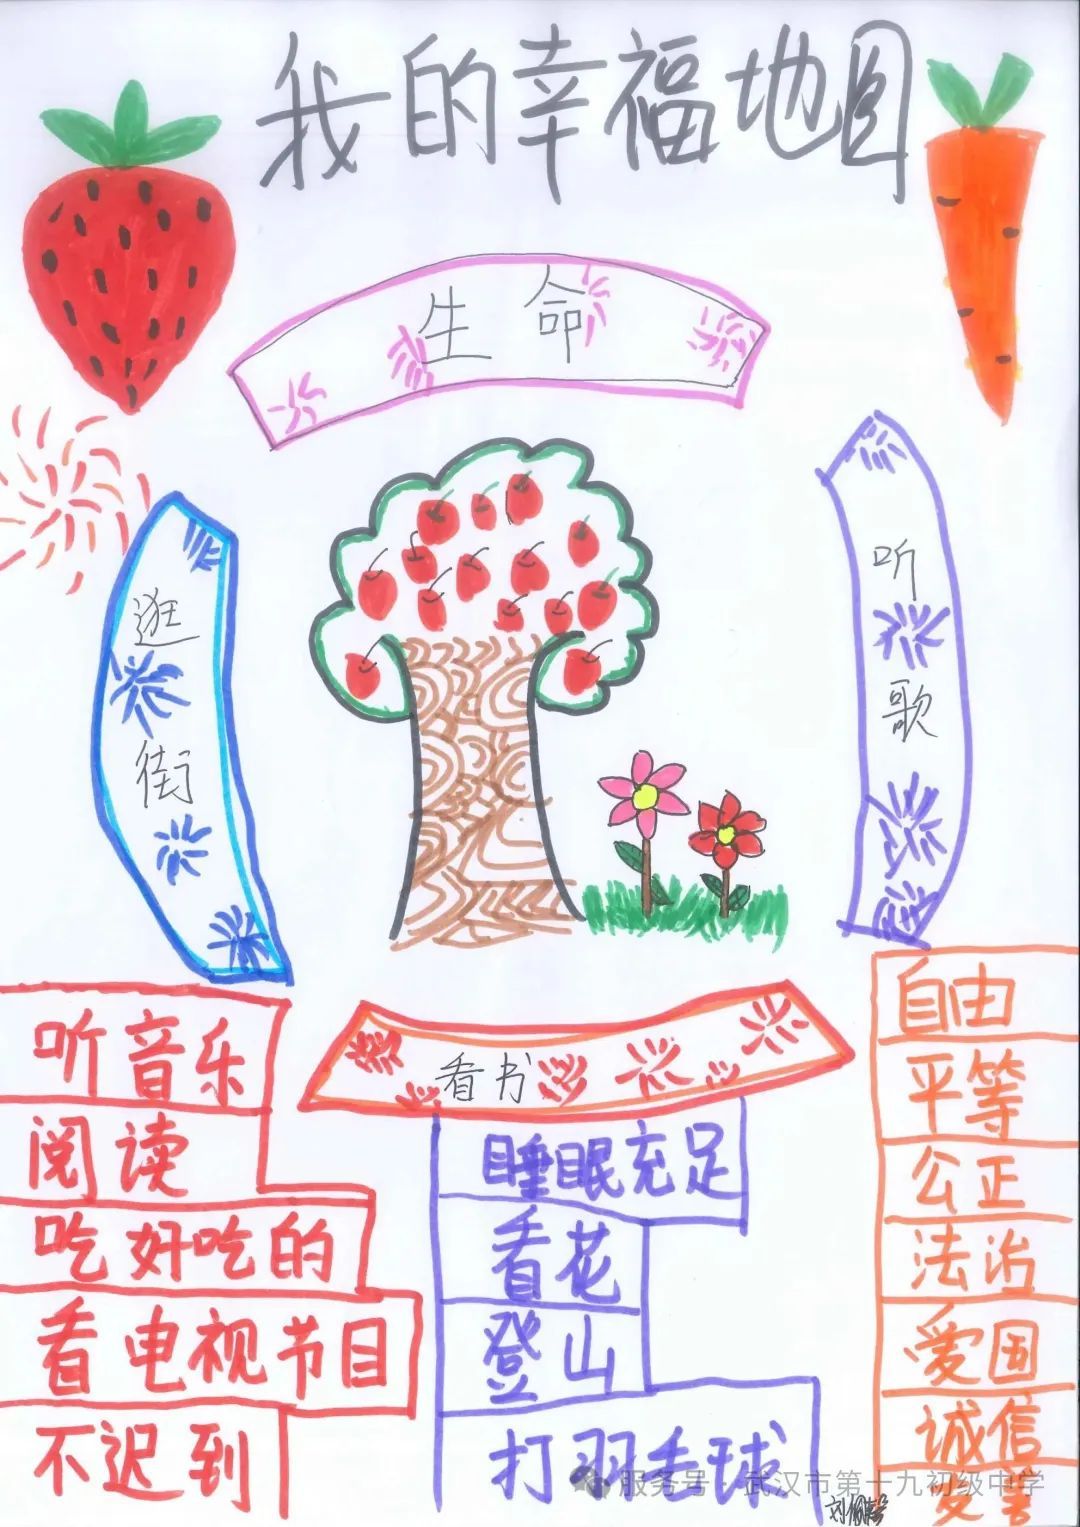 我的幸福地图
生命
逛街
听歌
看书
听音乐
阅读
吃好吃的
看电视节目
不迟到
睡眠充足
看花
登山
打羽毛球
自由
平等
公正
法治
爱国
诚信
服务号·武汉市第十九初级中学